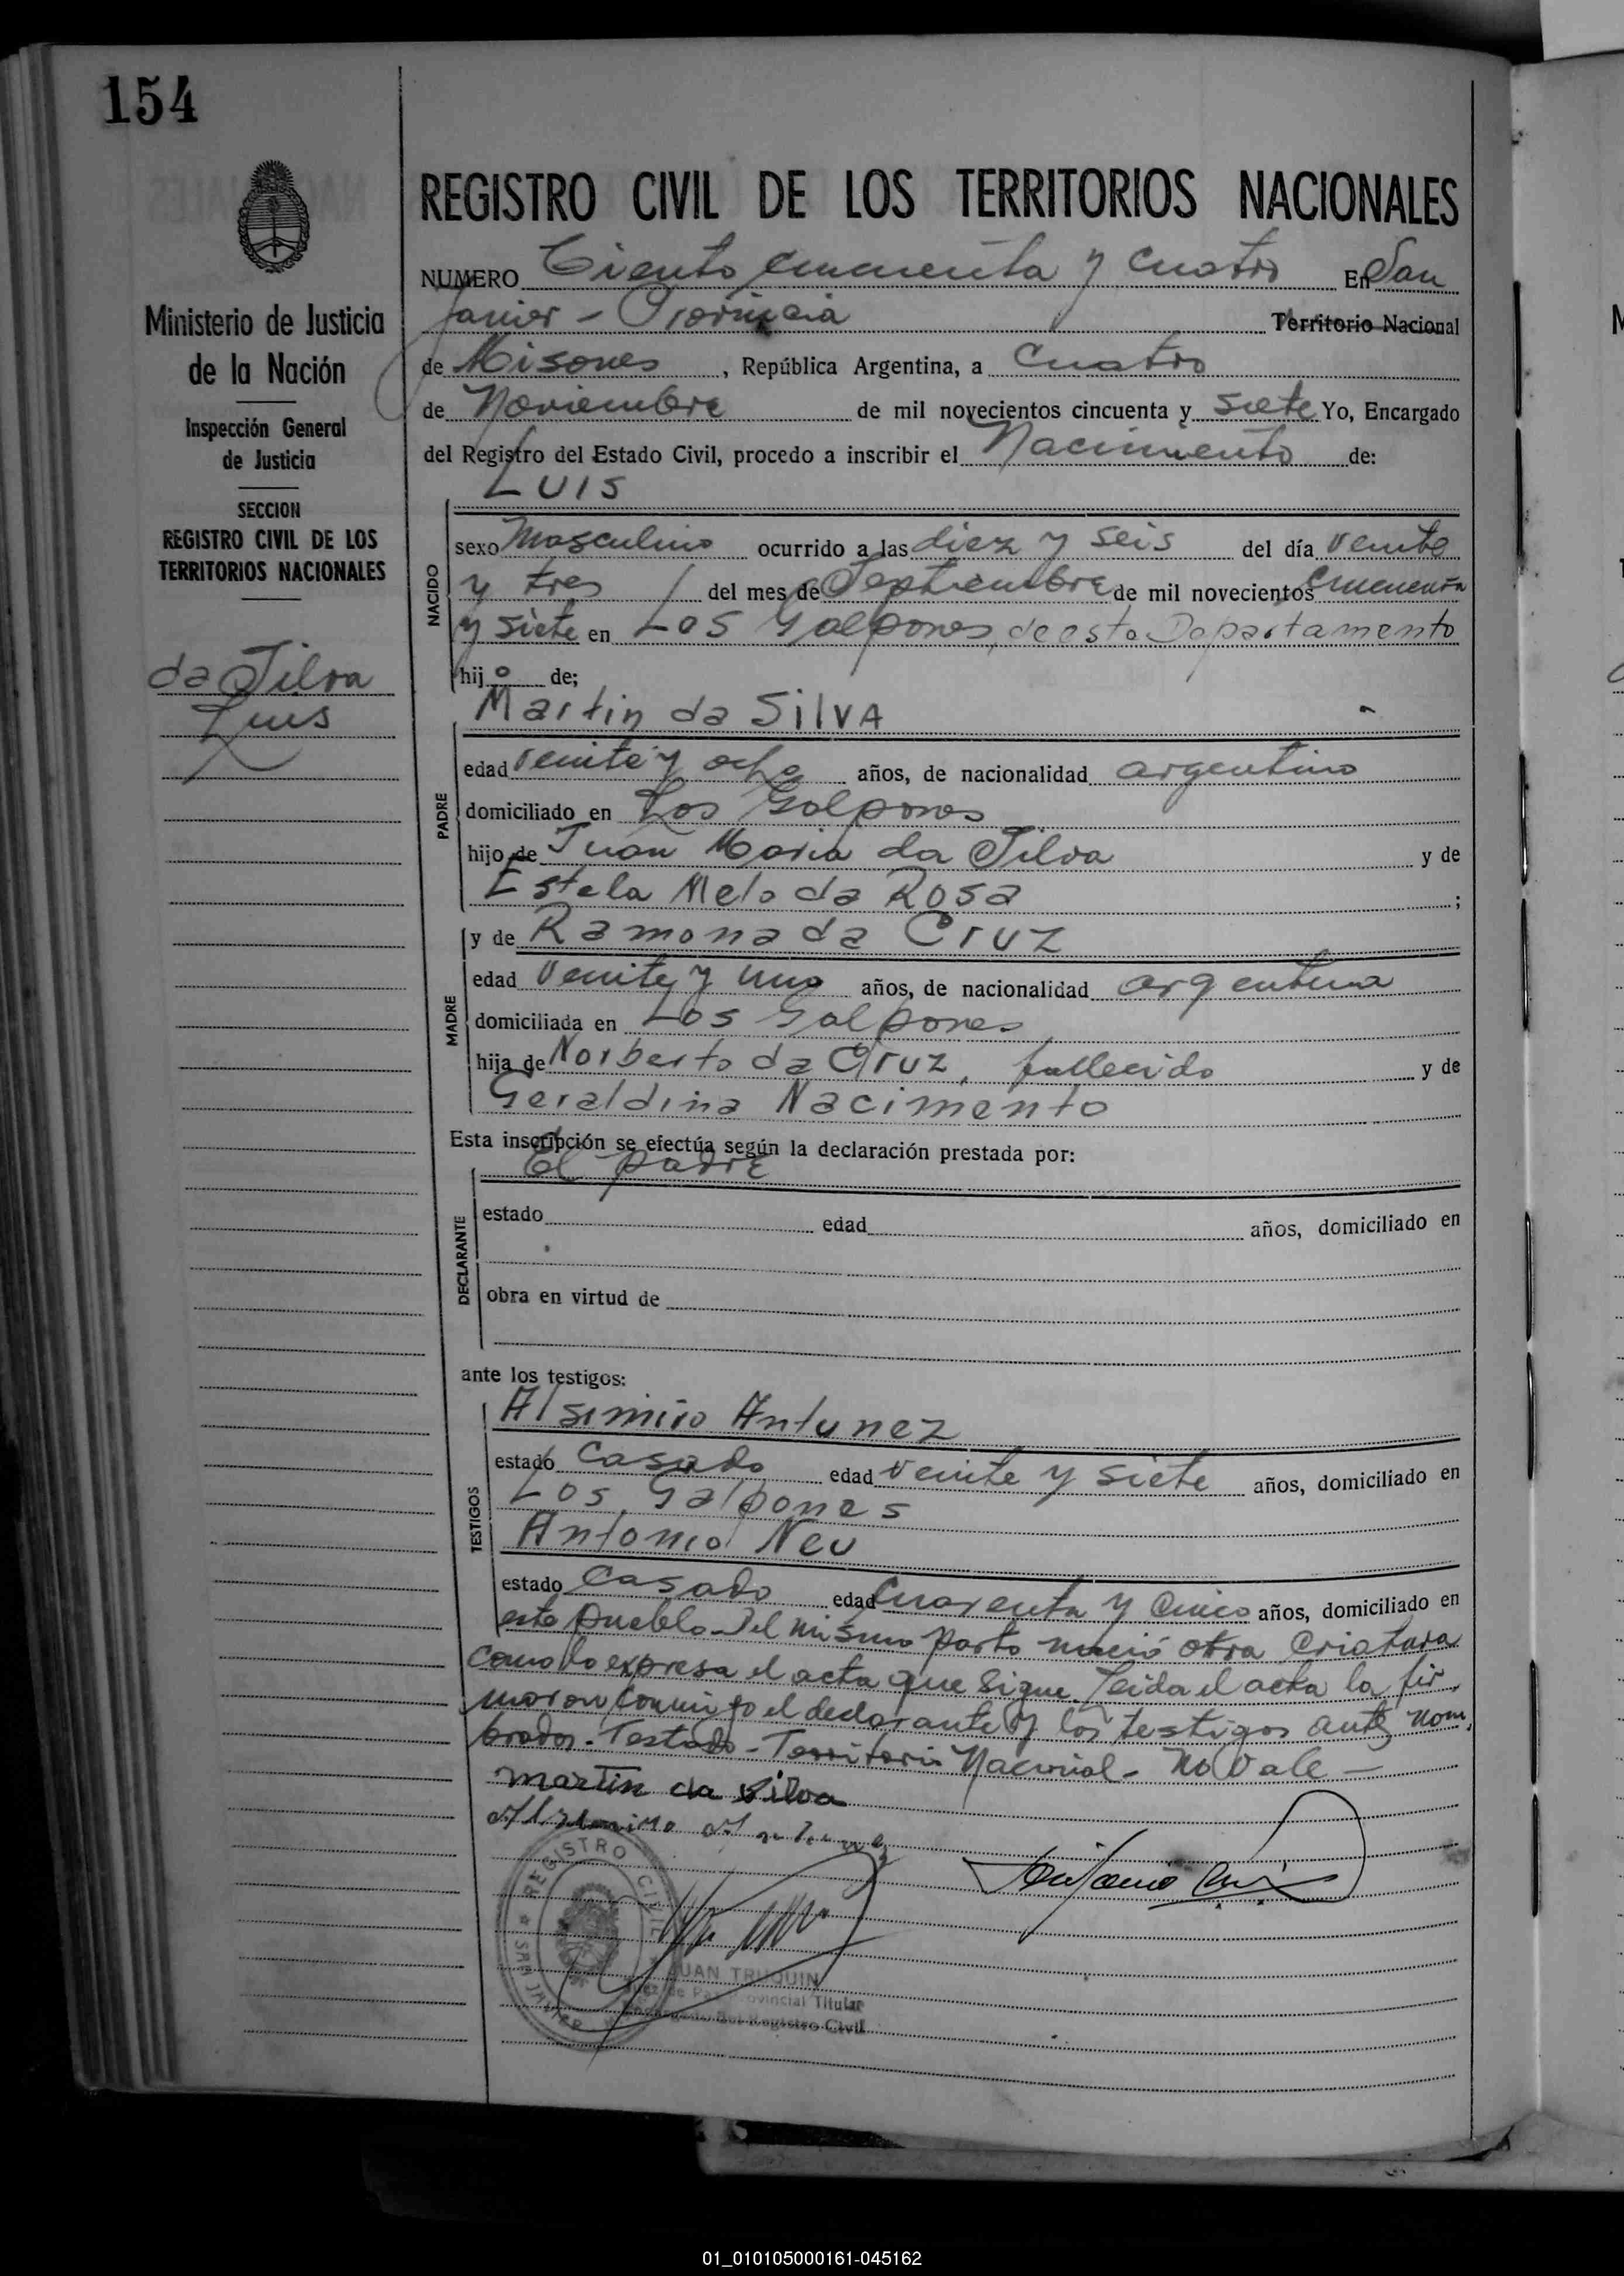 154
REGISTRO CIVIL DE LOS TERRITORIOS NACIONALES
NUMERO Ciento cincuenta y cuatro En San
Javier - Provincia Territorio Nacional
de Misiones, República Argentina, a cuatro
de Noviembre de mil novecientos cincuenta y siete Yo, Encargado
del Registro del Estado Civil, procedo a inscribir el Nacimiento de:
LUIS
NACIDO
sexo Masculino ocurrido a las diez y seis del día veinte
y tres del mes de Septiembre de mil novecientos cincuenta
y siete en Los Galpones, de este Departamento
hijo de;
Martin da SilVA
PADRE
edad veinte y ocho años, de nacionalidad argentino
domiciliado en Los Galpones
hijo de Juan Maria da Silva y de
Estela Melo da Rosa;
y de Ramona da Cruz
MADRE
edad veinte y uno años, de nacionalidad argentina
domiciliada en Los Galpones
hija de Norberto da Cruz, fallecido y de
Geraldina Nacimento
Esta inscripción se efectúa según la declaración prestada por:
El padre
DECLARANTE
estado edad años, domiciliado en
obra en virtud de
ante los testigos:
Alsimiro Antunez
TESTIGOS
estado Casado edad veinte y siete años, domiciliado en
Los Galpones
Antonio Neu
estado Casado edad Cuarenta y Cinco años, domiciliado en
este pueblo - Del mismo parto nació otra Criatura
como lo expresa el acta que sigue. Leida el acta la fir-
maron conmigo el declarante y los testigos antes nom-
brados - Testado - Territorio Nacional - No Vale -
martin da silva
Alsimiro Antunez
REGISTRO CIVIL
SAN JAVIER
JUAN TRUQUIN
Juez de Paz Provincial Titular
Encargado Del Registro Civil
Ministerio de Justicia
de la Nación
Inspección General
de Justicia
SECCION
REGISTRO CIVIL DE LOS
TERRITORIOS NACIONALES
da Silva
Luis
01_010105000161-045162